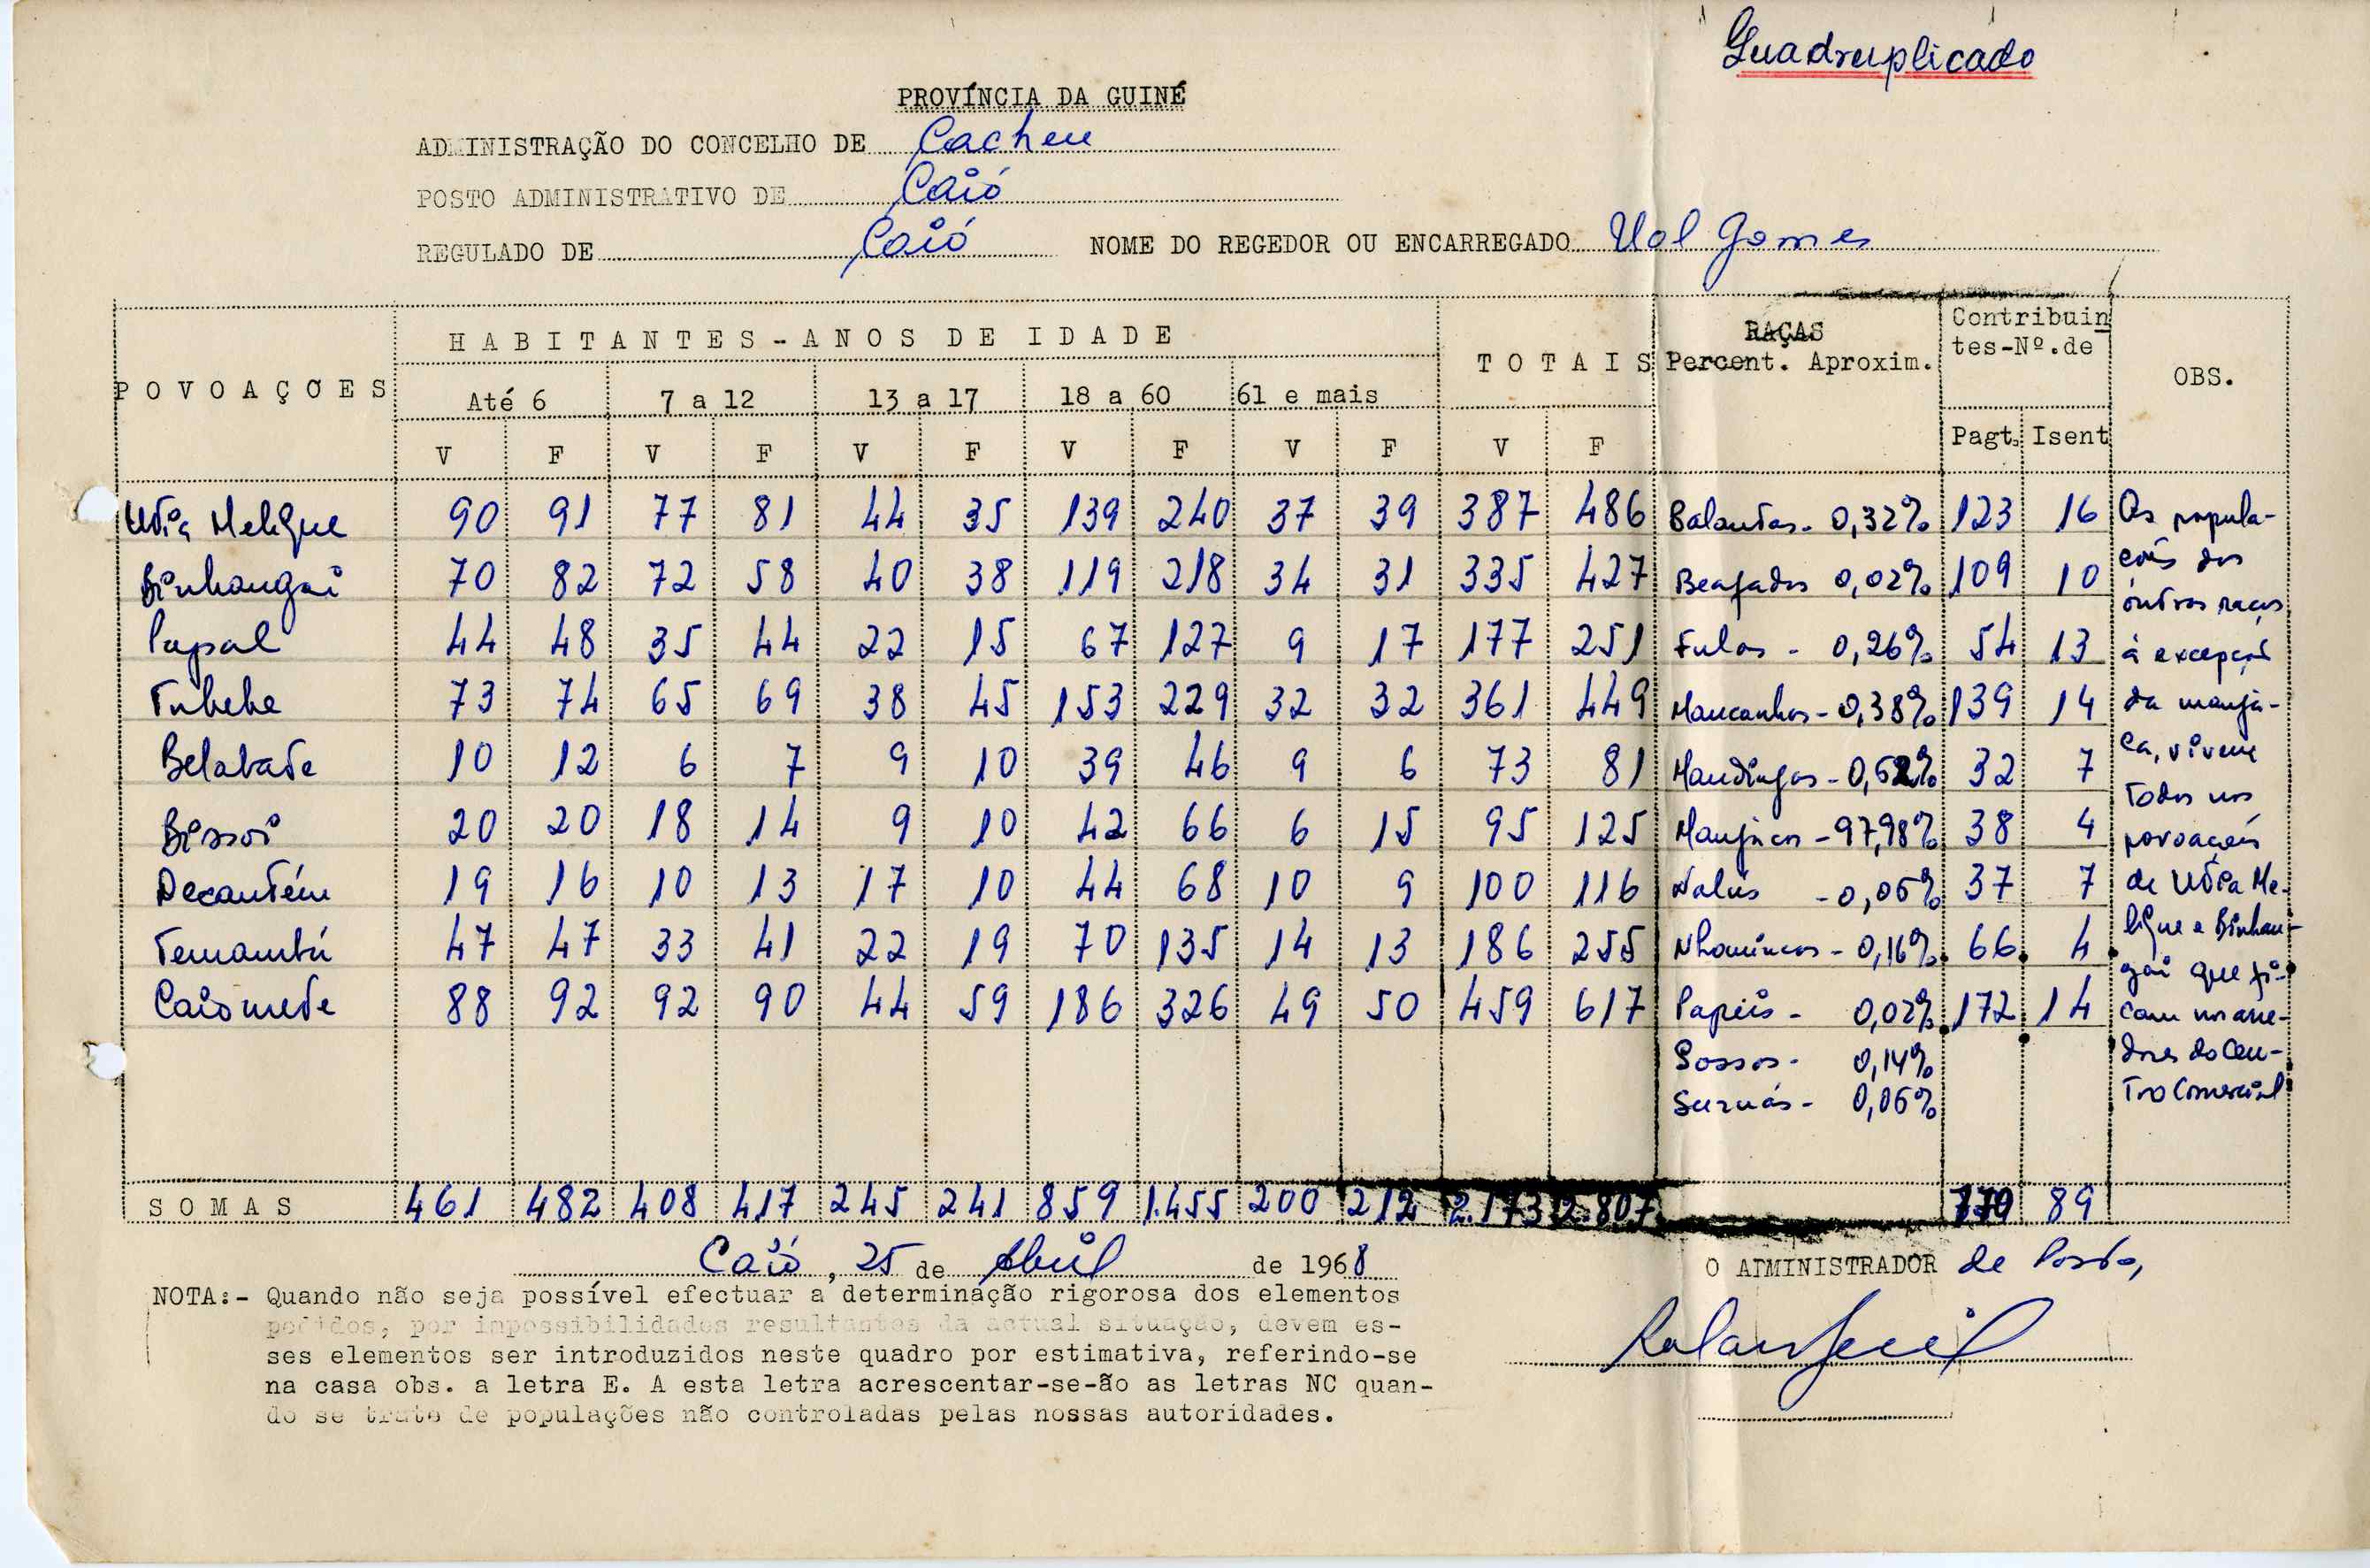 Quadruplicado
PROVÍNCIA DA GUINÉ
ADMINISTRAÇÃO DO CONCELHO DE Cacheu
POSTO ADMINISTRATIVO DE Caió
REGULADO DE Caió NOME DO REGEDOR OU ENCARREGADO Ual Gomes
POVOAÇÕES HABITANTES-ANOS DE IDADE TOTAIS RAÇAS Percent. Aproxim. Contribuin tes-Nº.de OBS.
Até 6 7 a 12 13 a 17 18 a 60 61 e mais
V F V F V F V F V F V F Pagt. Isent
Utia Meligue 90 91 77 81 44 35 139 240 37 39 387 486 Balantas- 0,32% 123 16
Binhangai 70 82 72 58 40 38 119 218 34 31 335 427 Beafadas 0,02% 109 10
Papal 44 48 35 44 22 15 67 127 9 17 177 251 Fulas - 0,26% 54 13
Tubebe 73 74 65 69 38 45 153 229 32 32 361 449 Mancanhas-0,38% 139 14
Belabate 10 12 6 7 9 10 39 46 9 6 73 81 Mandingas- 32 7
Bissoi 20 20 18 14 9 10 42 66 6 15 95 125 Manjacos -97,98% 38 4
Decantém 19 16 10 13 17 10 44 68 10 9 100 116 Nalús -0,06% 37 7
Temambú 47 47 33 41 22 19 70 135 14 13 186 255 Nhomincas- 0,16% 66 4
Caiomete 88 92 92 90 44 59 186 326 49 50 459 617 Papeis- 0,02% 172 14
Sossos- 0,14%
Surnás- 0,06%
As popula-
ções das
outras raças
à excepção
da manja-
ca, vivem
todas nas
povoações
de Utia Me-
ligue e Binhan-
gai que fi-
cam nos arre-
dores do Cen-
tro Comercial
SOMAS 461 482 408 417 245 241 859 1.455 200 212 2.173 2.807 89
Caió, 25 de Abril de 1968
O ADMINISTRADOR de Posto,
NOTA:- Quando não seja possível efectuar a determinação rigorosa dos elementos
pedidos, por impossibilidades resultantes da actual situação, devem es-
ses elementos ser introduzidos neste quadro por estimativa, referindo-se
na casa obs. a letra E. A esta letra acrescentar-se-ão as letras NC quan-
do se trate de populações não controladas pelas nossas autoridades.